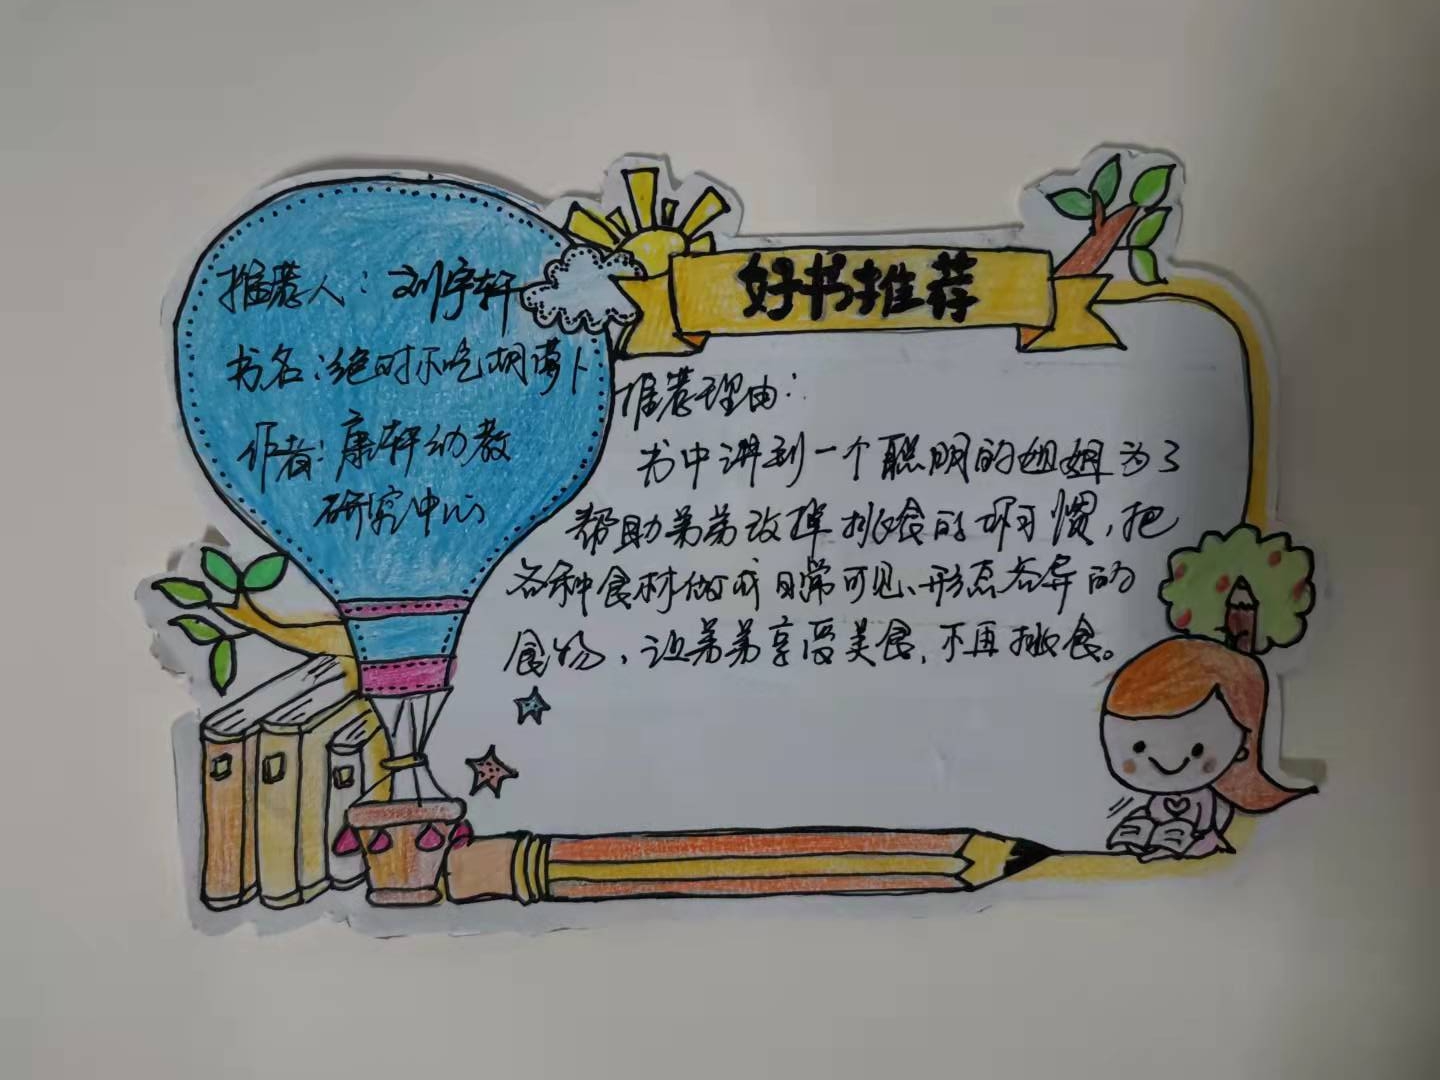 好书推荐
推荐人：刘宇轩
书名：绝对不吃胡萝卜
作者：康轩幼教
研究中心
推荐理由：
书中讲到一个聪明的姐姐为了
帮助弟弟改掉挑食的坏习惯，把
各种食材做成日常可见、形态各异的
食物，让弟弟享受美食，不再挑食。